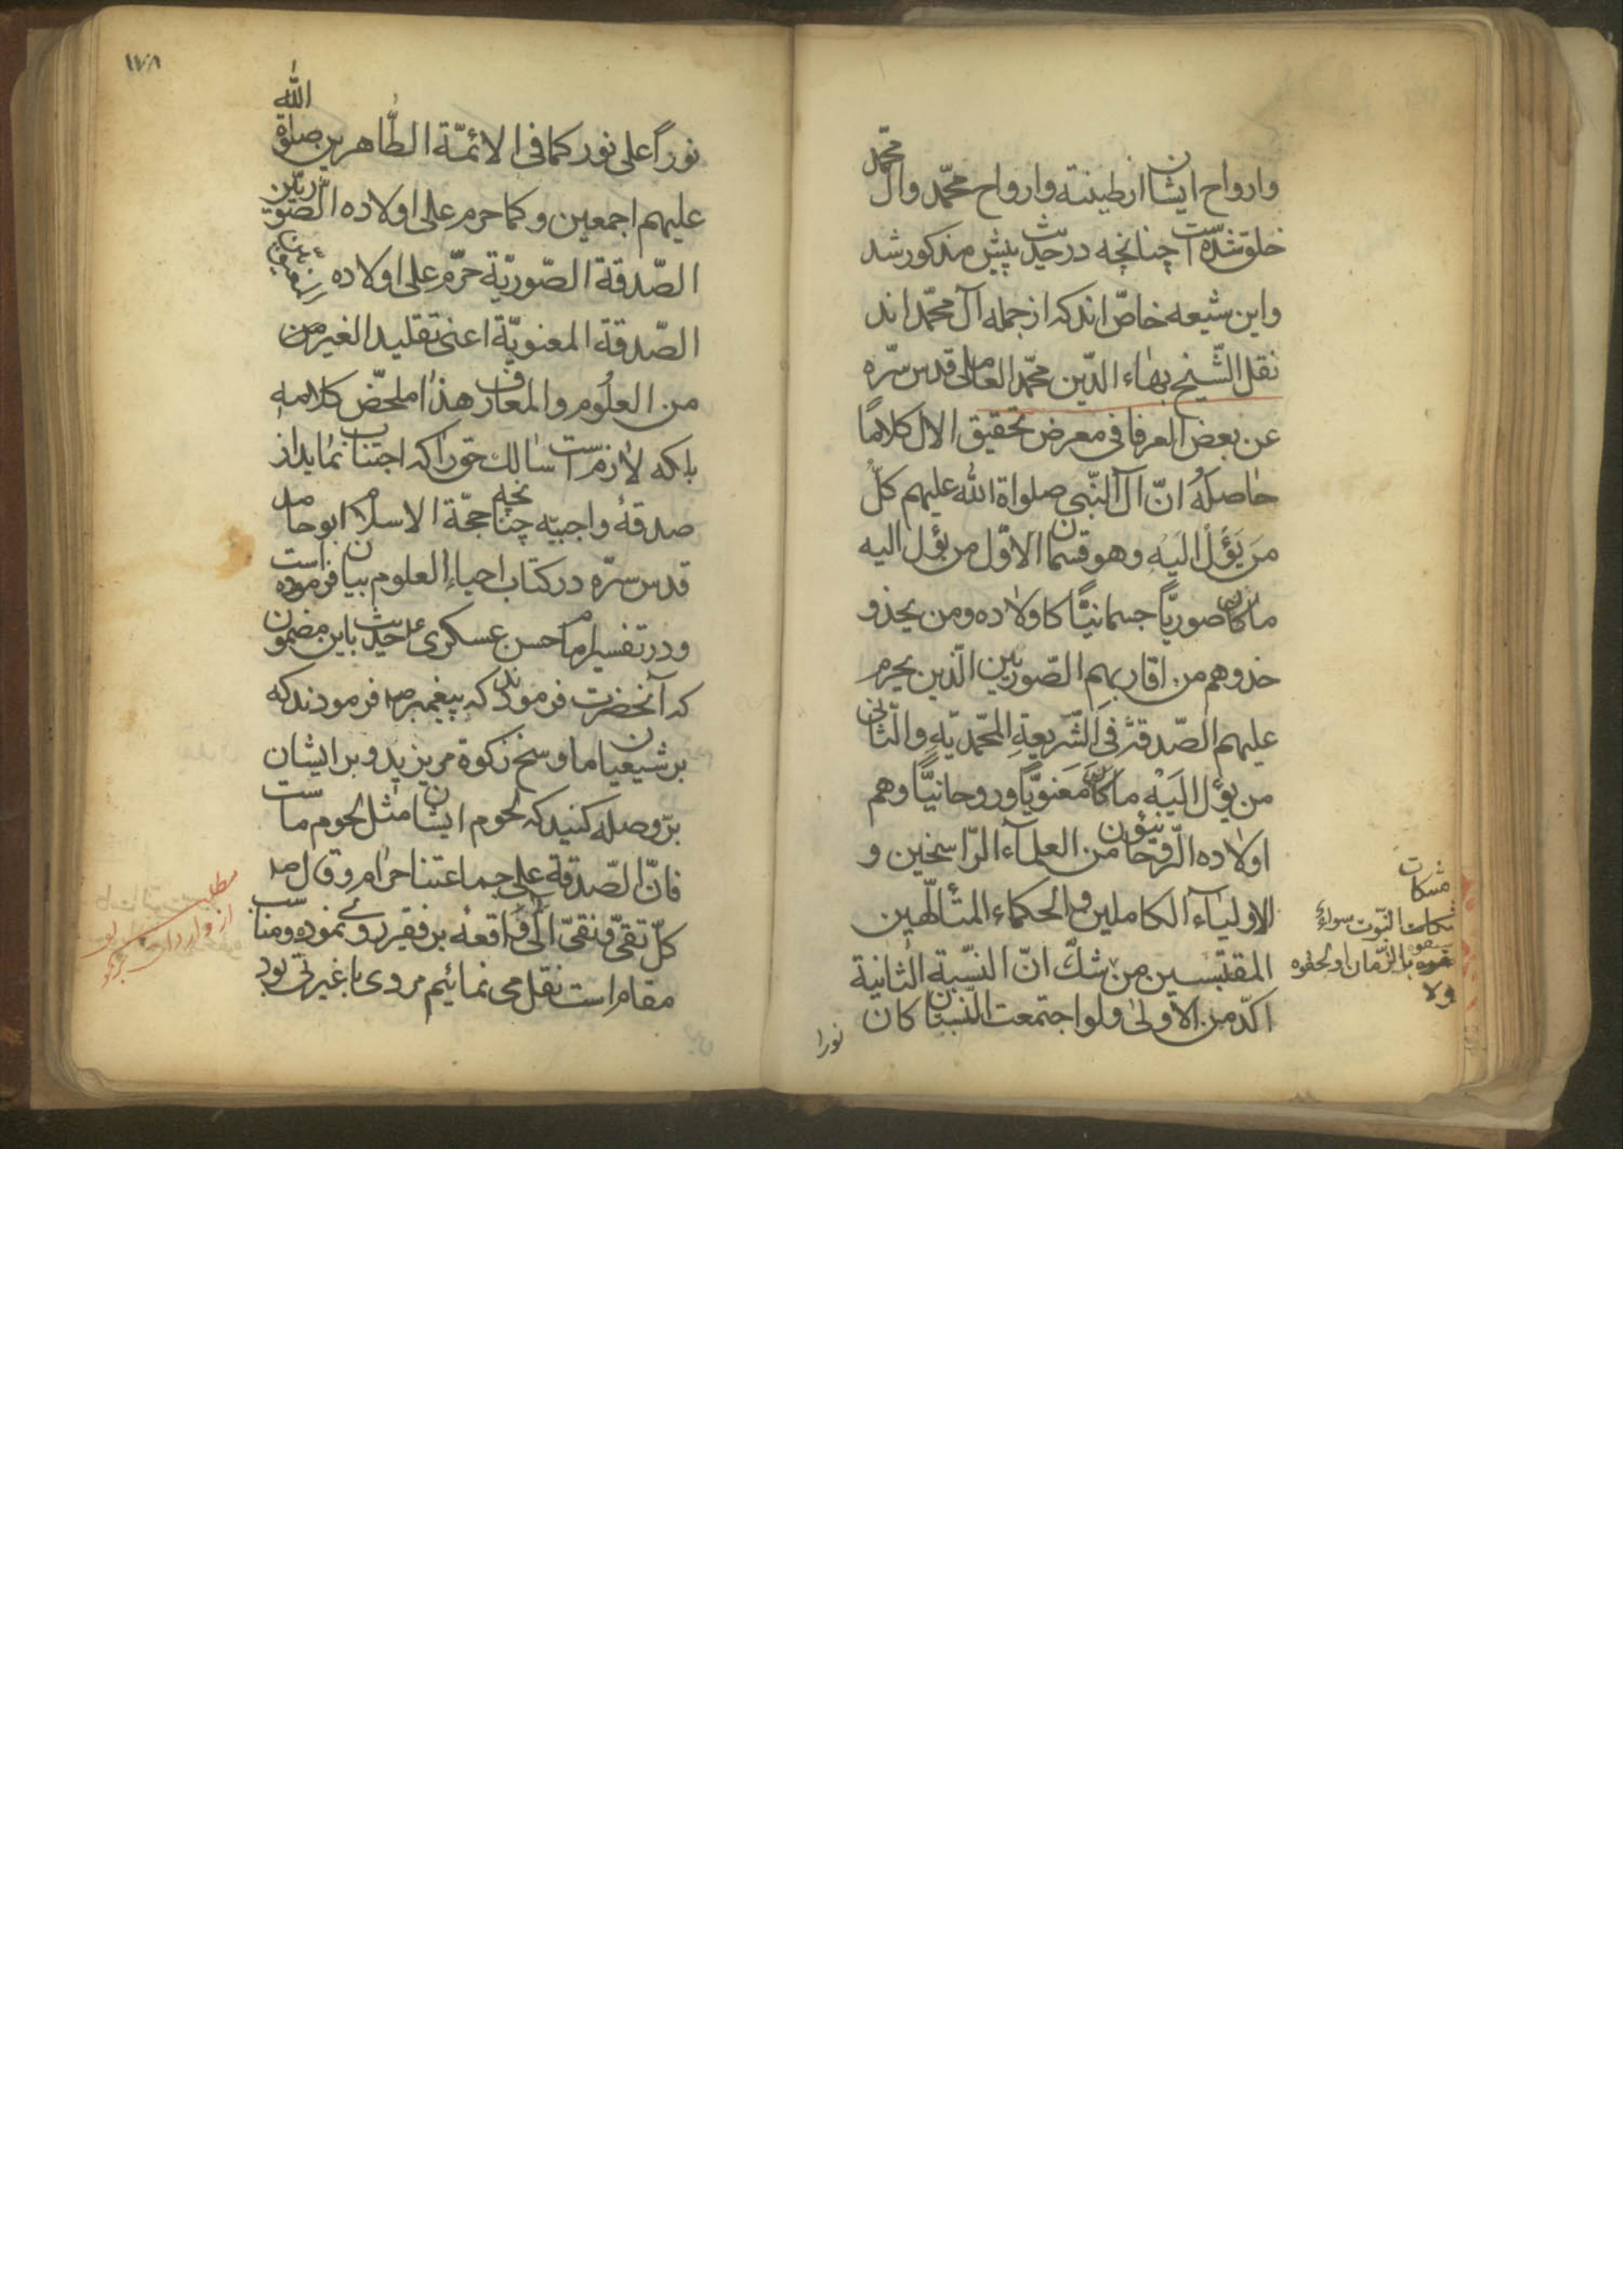 وارواح ایشان از طینته وارواح محمّد وآل محمّد
خلق شدّه است چنانچه در حدیث پیش مذکور شد
واین شیعه خاصّ اند که از جمله آل محمّد اند
نقل الشّیخ بهاء الدّین محمّد العاملی قدس سرّه
عن بعض العرفا فی معرض تحقیق الال کلامًا
حاصله انّ آل النّبی صلواة الله علیهم کلّ
من یَؤُلُ الَیْهِ وهو قسمان الاوّل من یؤل الیه
ماٰلاً صوریًّا جسمانیًّا کاولاده ومن یحذو
حذوهم من اقاربهم الصّوریین الّذین یحرم
علیهم الصّدقة فی الشّریعة المحمّدیّه والثّانی
من یؤل الَیْهِ ماٰلاً مَعنویًّا وروحانیًّا وهم
اولاده الرّوحانیّون من العلمآء الرّاسخین و
الاولیآء الکاملین والحکماء المتألّهین
المقتبسین من شکّ انّ النسّبة الثانیة
اکّد من الاولی ولو اجتمعت النّسبتان کان
نورا
مشکات
النبّوت سواءٌ
سبقوه بالزّمان او لحقوه
ولا
۱۷۸
نوراً علی نور کما فی الائمّة الطّاهرین صلوٰة الله
علیهم اجمعین وکما حرم علی اولاده الصّوریّین
الصّدقة الصّوریّة حرّم علی اولاده
الصّدقة المعنویّة اعنی تقلید الغیر من
من العلُوم والمعارف هذا ملخّص کلامه
بلکه لازم است سالک حق را که اجتناب نماید از
صدقهٔ واجبیّه چنانچه حجّة الاسلام ابوحامد
قدس سرّه در کتاب احیاء العلوم بیان فرموده است
ودر تفسیر امام حسن عسکری ع حدیث باین مضمون
که آنحضرت فرمودند که پیغمبر ص فرمودند که
بر شیعیان ما وسخ زکوة مریزید و بر ایشان
برّ وصله کنید که لحوم ایشان مثل لحوم ماست
فانّ الصّدقة علی جماعتنا حرام وقال ص
کلّ تقیّ ونقیّ الی واقعه بر فقیر روی نموده ومناسب
مقام است نقل می نمائیم مردی با غیرتی بود
مطلب
از واردات